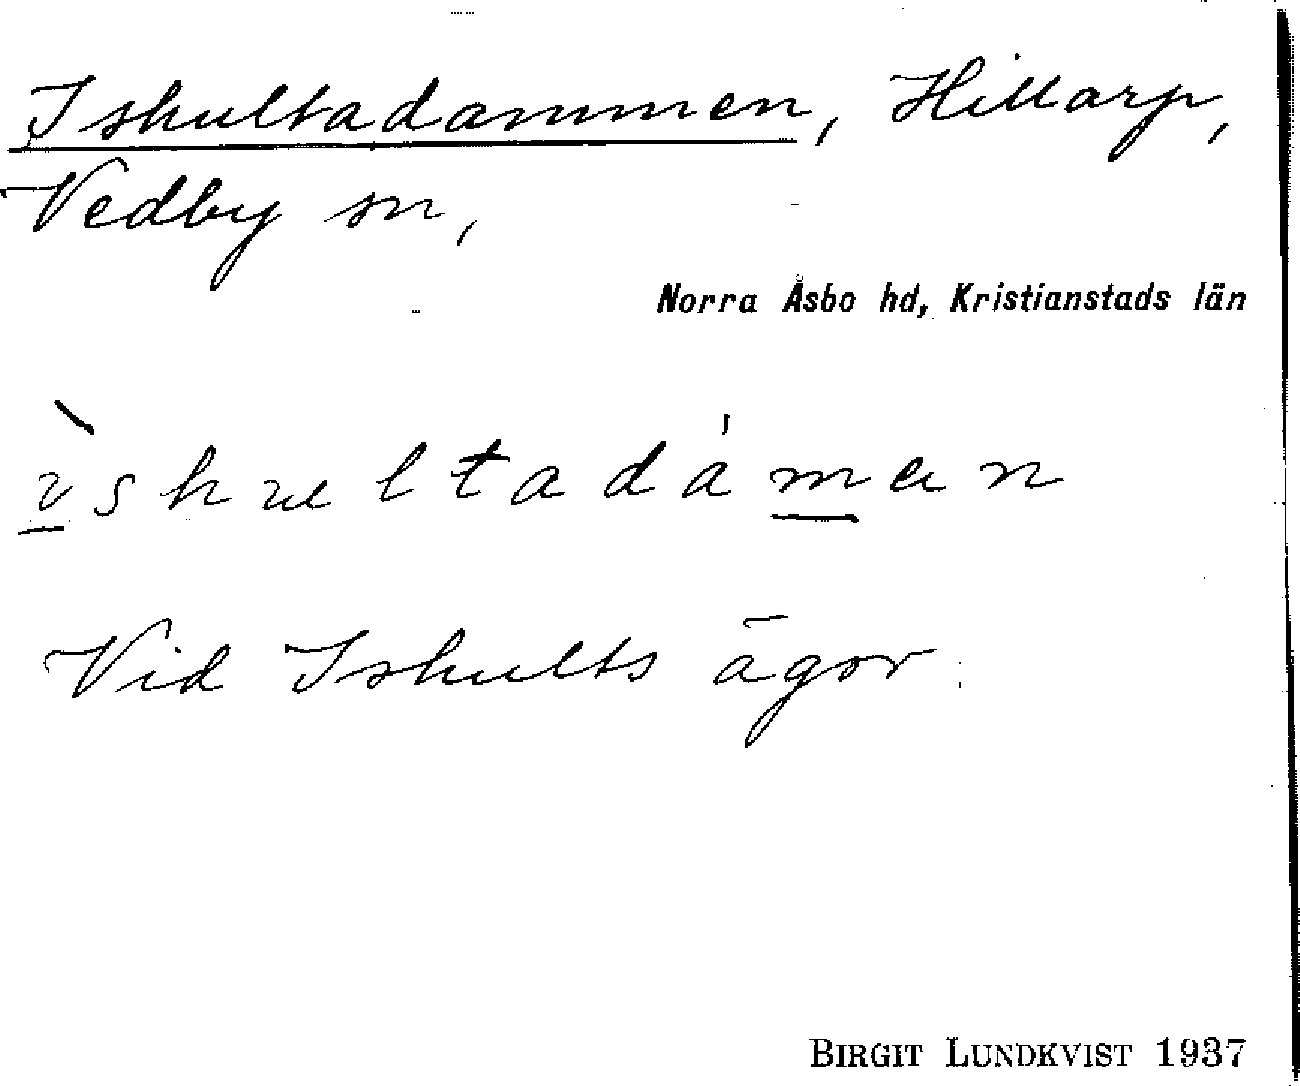 Iskultadammen, Hillarp,
Vedby sn,
Norra Åsbo hd, Kristianstads län
Vid Iskults ägor.
BIRGIT LUNDKVIST 1937